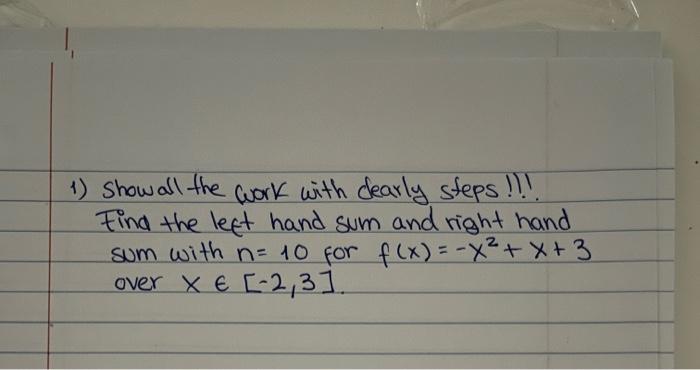 1) Show all the work with clearly steps!!!
Find the left hand sum and right hand
sum with n= 10 for f(x) = -x² + x + 3
over x ∈ [-2,3].